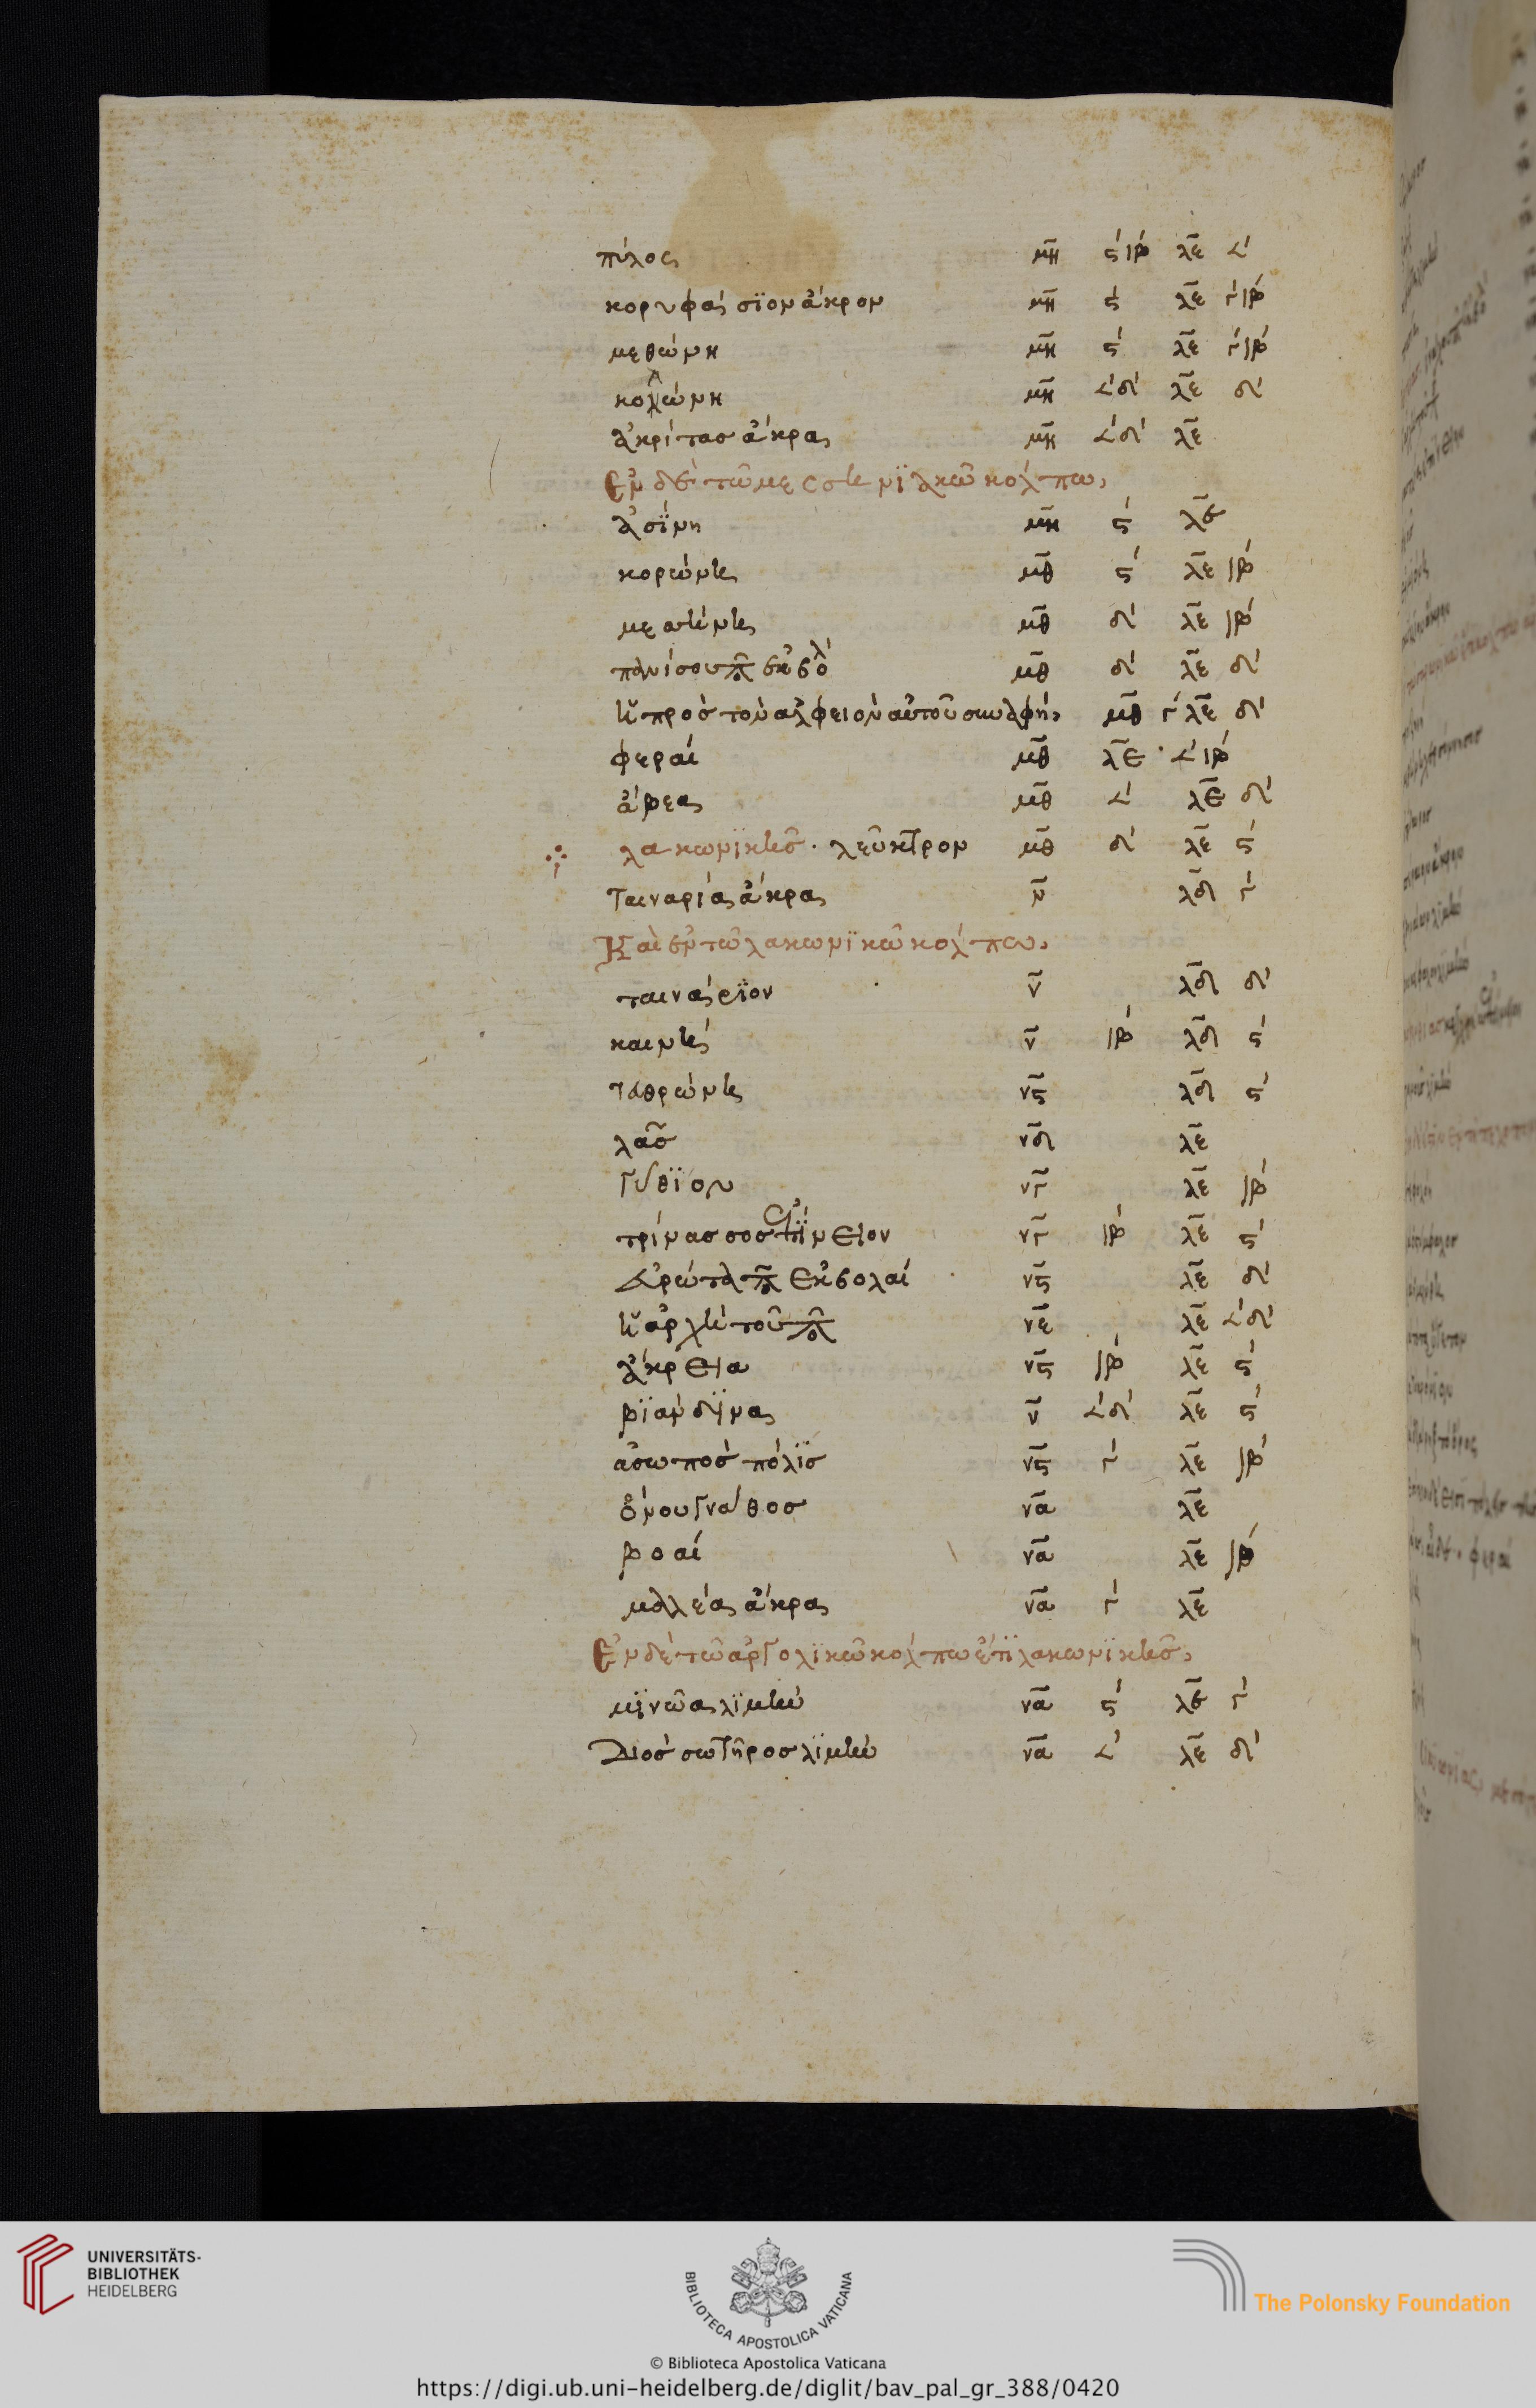 πύλος μη ς´ ιβ´ λε 𐅵´
κορυφάσϊον ἄκρον μη ς´ λε γ´ ιβ´
μεθώνη μη ς´ λε γ´ ιβ´
κολώνη μη 𐅵´ δ´ λε δ´
ἀκρίτας ἄκρα μη 𐅵´ δ´ λε
Ἐν δὲ τῶ μεσσηνϊακῶ κόλπω,
ἀσΐνη μη ς´ λε
κορώνη μθ ς´ λε ιβ´
μεσήνη μθ δ´ λε ιβ´
παμίσου π ἐκβολ μθ δ´ λε δ´
ἡ πρὸς τὸν ἀλφειὸν αὐτοῦ συναφή, μθ γ´ λε δ´
φεραί μθ λε 𐅵´ ιβ´
ἄβεα μθ 𐅵´ λε δ´
λακωνϊκῆς · λεῦκτρον μθ δ´ λε ς´
Ταιναρία ἄκρα ν λδ γ´
Καὶ ἐν τῶ λακωνϊκῶ κόλπω,
ταινάρϊον ν λδ δ´
καινή ν ιβ´ λδ ς´
τευθρώνη νς λδ ς´
λᾶς νδ λε
γύθϊον νγ λε ιβ´
τρίνασσος νγ ιβ´ λε ς´
εὐρώτα π ἐκβολαί νς λε δ´
ἡ ἀρχὴ τοῦ π νε λε 𐅵´ δ´
ἄκρεια νς ιβ´ λε ς´
βϊάνδϋνα ν 𐅵´ δ´ λε ς´
ἀσωπὸς πόλϊς νς γ´ λε ιβ´
ὄνου γνάθος να λε
βοαί να λε ιβ´
μαλέα ἄκρα να γ´ λε
Ἐν δὲ τῶ ἀργολϊκῶ κόλπω ἔτϊ λακωνϊκῆς,
μϊνῶα λϊμήν να ς´ λε γ´
Διὸς σωτῆρος λϊμήν να 𐅵´ λε δ´
UNIVERSITÄTS-
BIBLIOTHEK
HEIDELBERG
BIBLIOTECA APOSTOLICA VATICANA
© Biblioteca Apostolica Vaticana
The Polonsky Foundation
https://digi.ub.uni-heidelberg.de/diglit/bav_pal_gr_388/0420